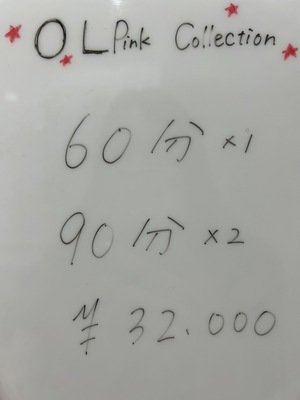 OL Pink Collection
60分 ×1
90分 ×2
¥ 32.000